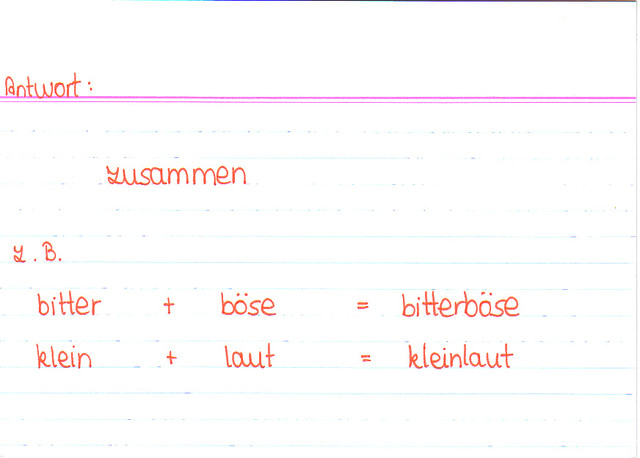 Antwort:
zusammen
z.B.
bitter + böse = bitterböse
klein + laut = kleinlaut